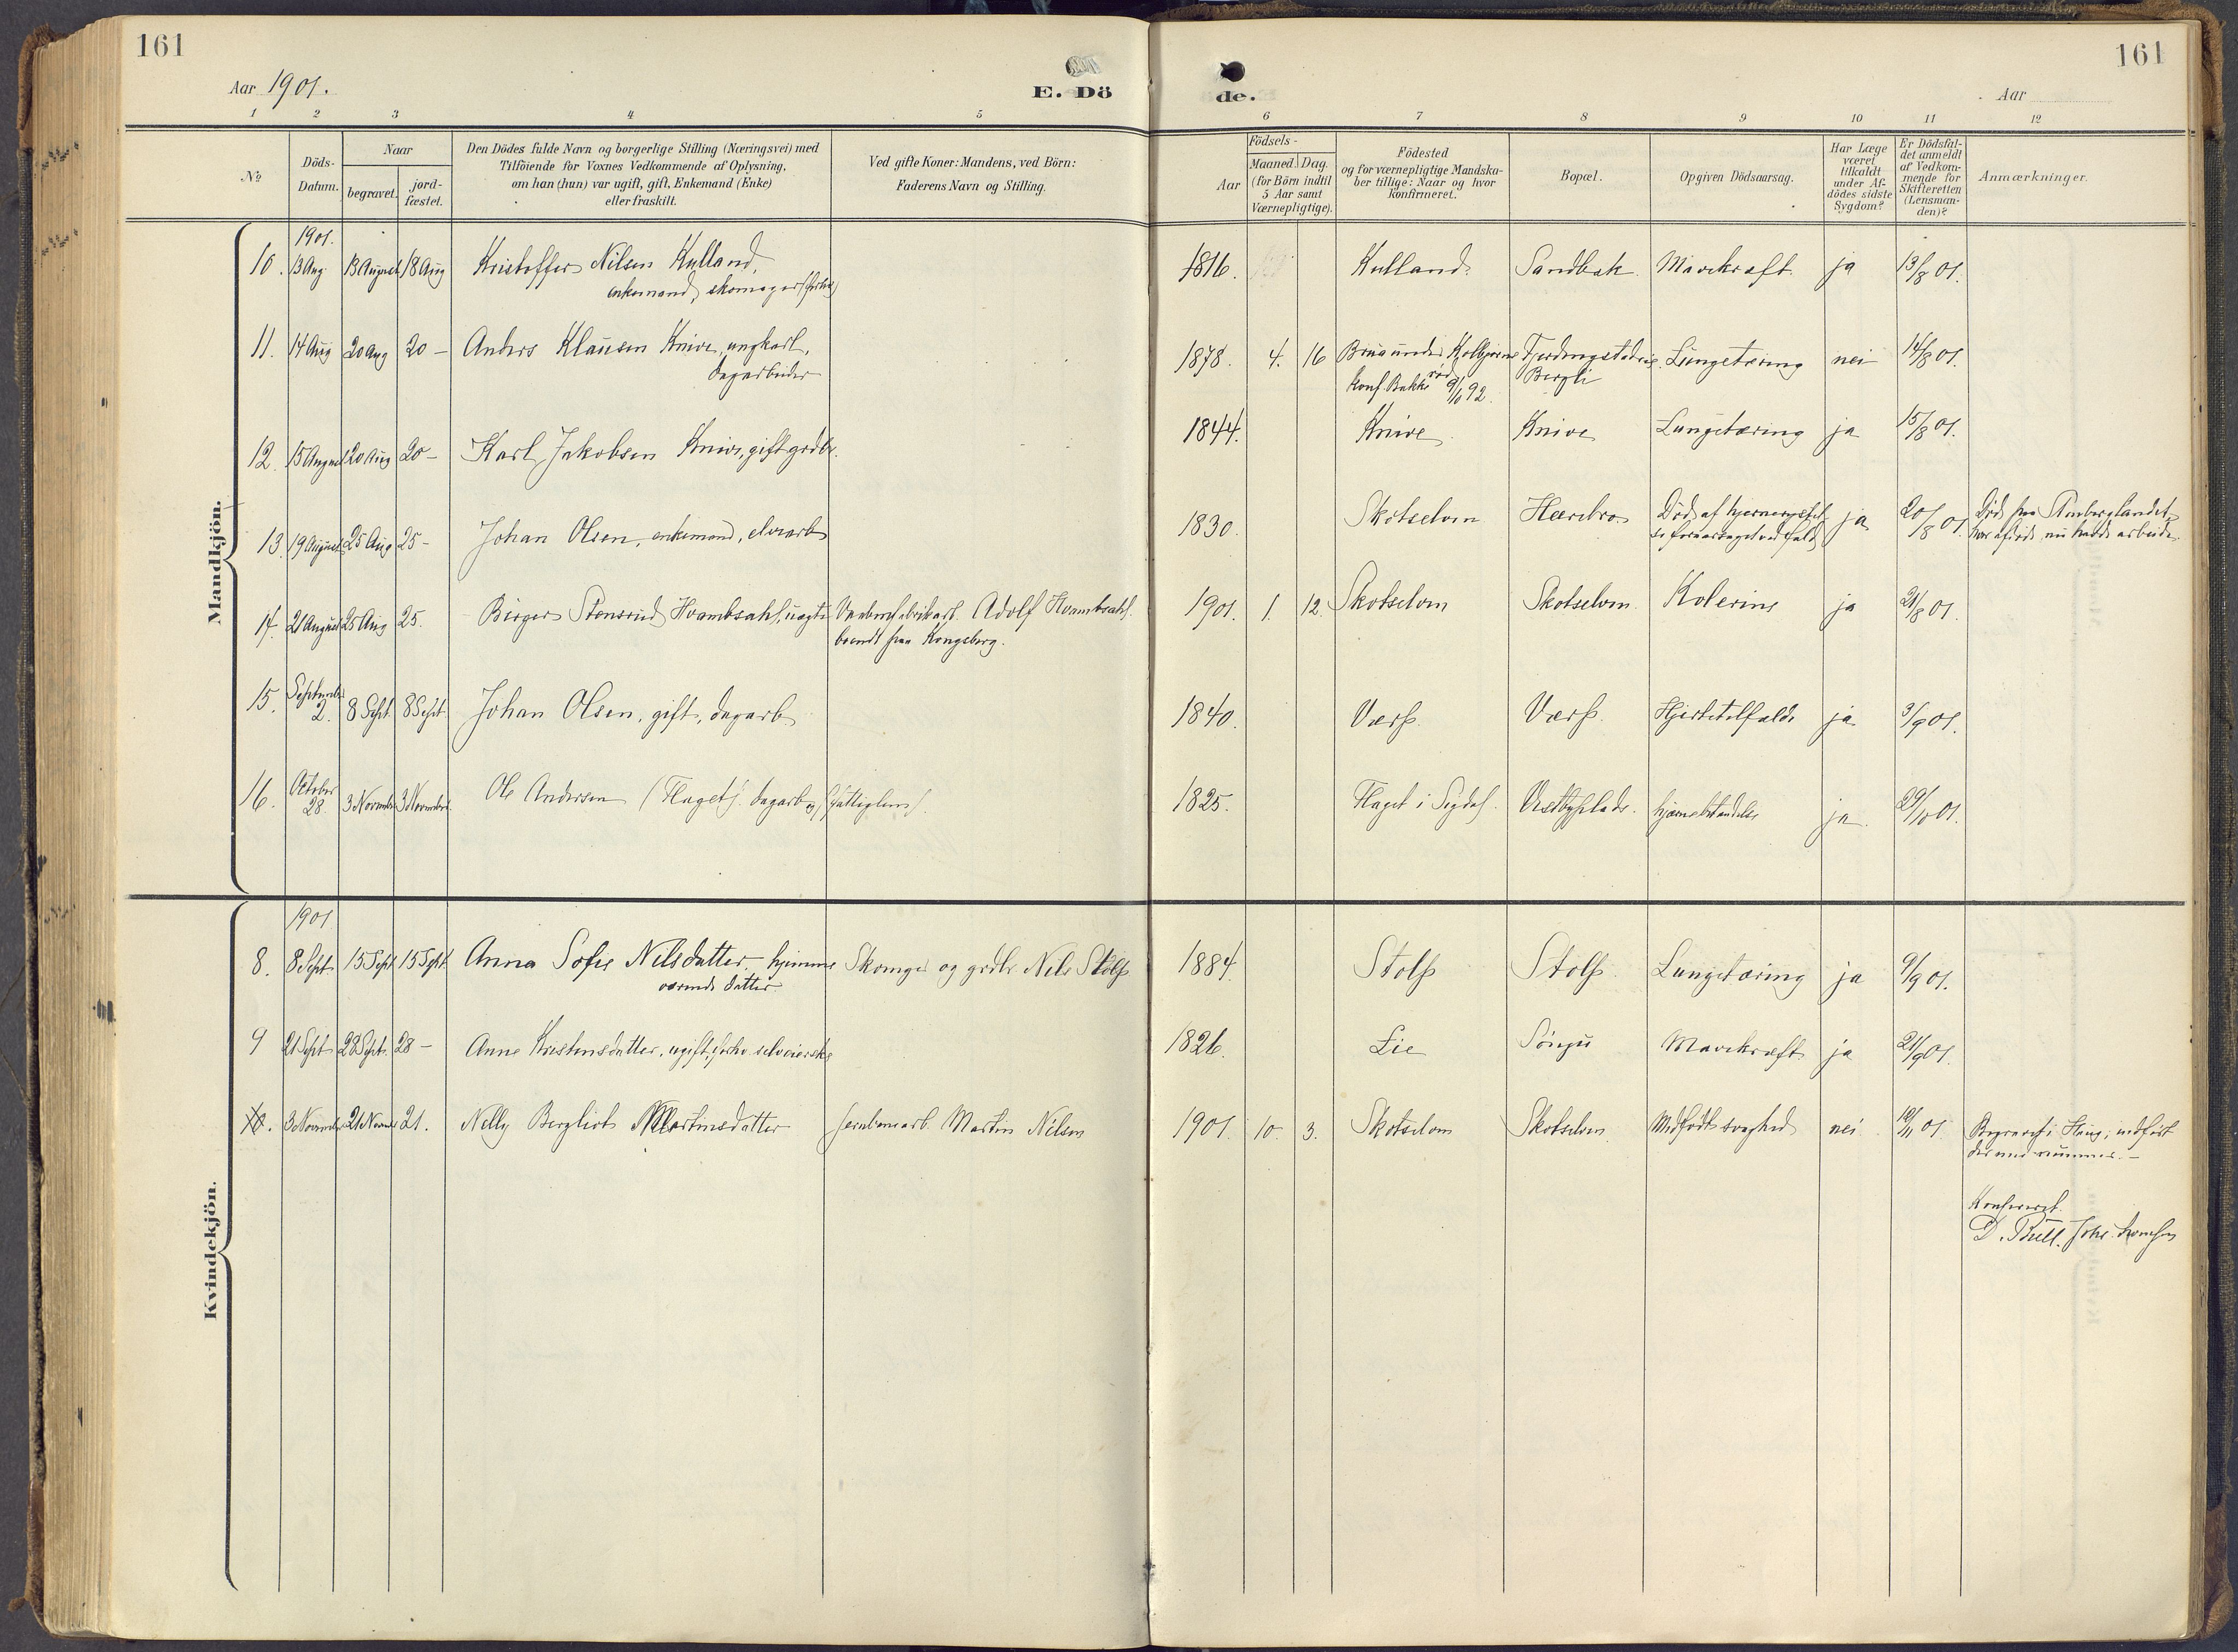 161
161
Aar 1901.
E. Dö
de.
Aar
1 2 3 4 5 6 7 8 9 10 11 12
№
Döds-Datum.
Naar
begravet.
jord-fæstet.
Den Dödes fulde Navn og borgerlige Stilling (Næringsvei) med
Tilföiende for Voxnes Vedkommende af Oplysning,
om han (hun) var ugift, gift, Enkemand (Enke)
eller fraskilt.
Ved gifte Koner: Mandens, ved Börn:
Faderens Navn og Stilling.
Födsels-
Aar
Maaned. Dag.
(for Börn indtil
5 Aar samt
Værnepligtige).
Födested
og for værnepligtige Mandska-
ber tillige: Naar og hvor
konfirmeret.
Bopæl.
Opgiven Dödsaarsag.
Har Læge
været
tilkaldt
under Af-
dödes sidste
Sygdom?
Er Dödsfal-
det anmeldt
af Vedkom-
mende for
Skifteretten
(Lensman-
den)?
Anmærkninger.
Mandkjön.
1901.
10. 13 Aug 13 August 18 Aug Kristoffer Nilsen Kulland, 1816. Kulland. Sandbak. Marekraft ja 13/8 01.
enkemand, skomager
11. 14 Aug 20 Aug 20 – Anders Klausen Knive, ungkarl, 1878. 4. 16 Brua under Kolbjørns Lungetæring nei 14/8 01.
dagarbeider
rød Konf. Bakke 9/10 92. Bergli
12. 15 August 20 Aug 20 – Karl Jakobsen Knive, gift grdbr. 1844. Knive Knive Lungetæring ja 15/8 01.
13. 19 August 25 Aug 25 – Johan Olsen, enkemand, elvearb 1830. Skotselven Hærebro Død af hjernerystel ja 20/8 01. Død paa
se foraarsaget ved fald
14. 21 August 25 Aug 25. Birger Stensrud Hvambsahl, uægte Adolf Hvambsahl. 1901. 1. 12. Skotselven Skotselven Kolerine ja 21/8 01.
boendt paa Kongsberg.
15. September 2. 8 Sept 8 Sept Johan Olsen, gift, dagarb 1840. Værp. Værp. Hjertetilfælde ja 3/9 01.
16. October 28. 3 November 3 November Ole Andersen (Flaget). dagarb 1825. Flaget i Sigdal. Vestbyplads. hjernebetændelse ja 29/10 01.
Kvindekjön.
1901
8. 8 Sept 15 Sept 15 Sept Anna Sofie Nilsdatter hjemme Skomager og grdbr Nils Stolp 1884. Stolp Stolp. Lungetæring ja 9/9 01.
værende datter
9 21 Sept 28 Sept. 28 – Anne Kristensdatter, ugift, forhv. selveierske 1826. Lie Marekræft ja 21/9 01.
10. 3 November 21 November 21. Nelly Bergliot Martinsdatter Jernbanearb. Martin Nilsen 1901. 10. 3. Skotselven Skotselven Medfødt svaghed nei 10/11 01 Begravet i Haug; indført
der med nummer. –
Konfereret.
D. Bull.